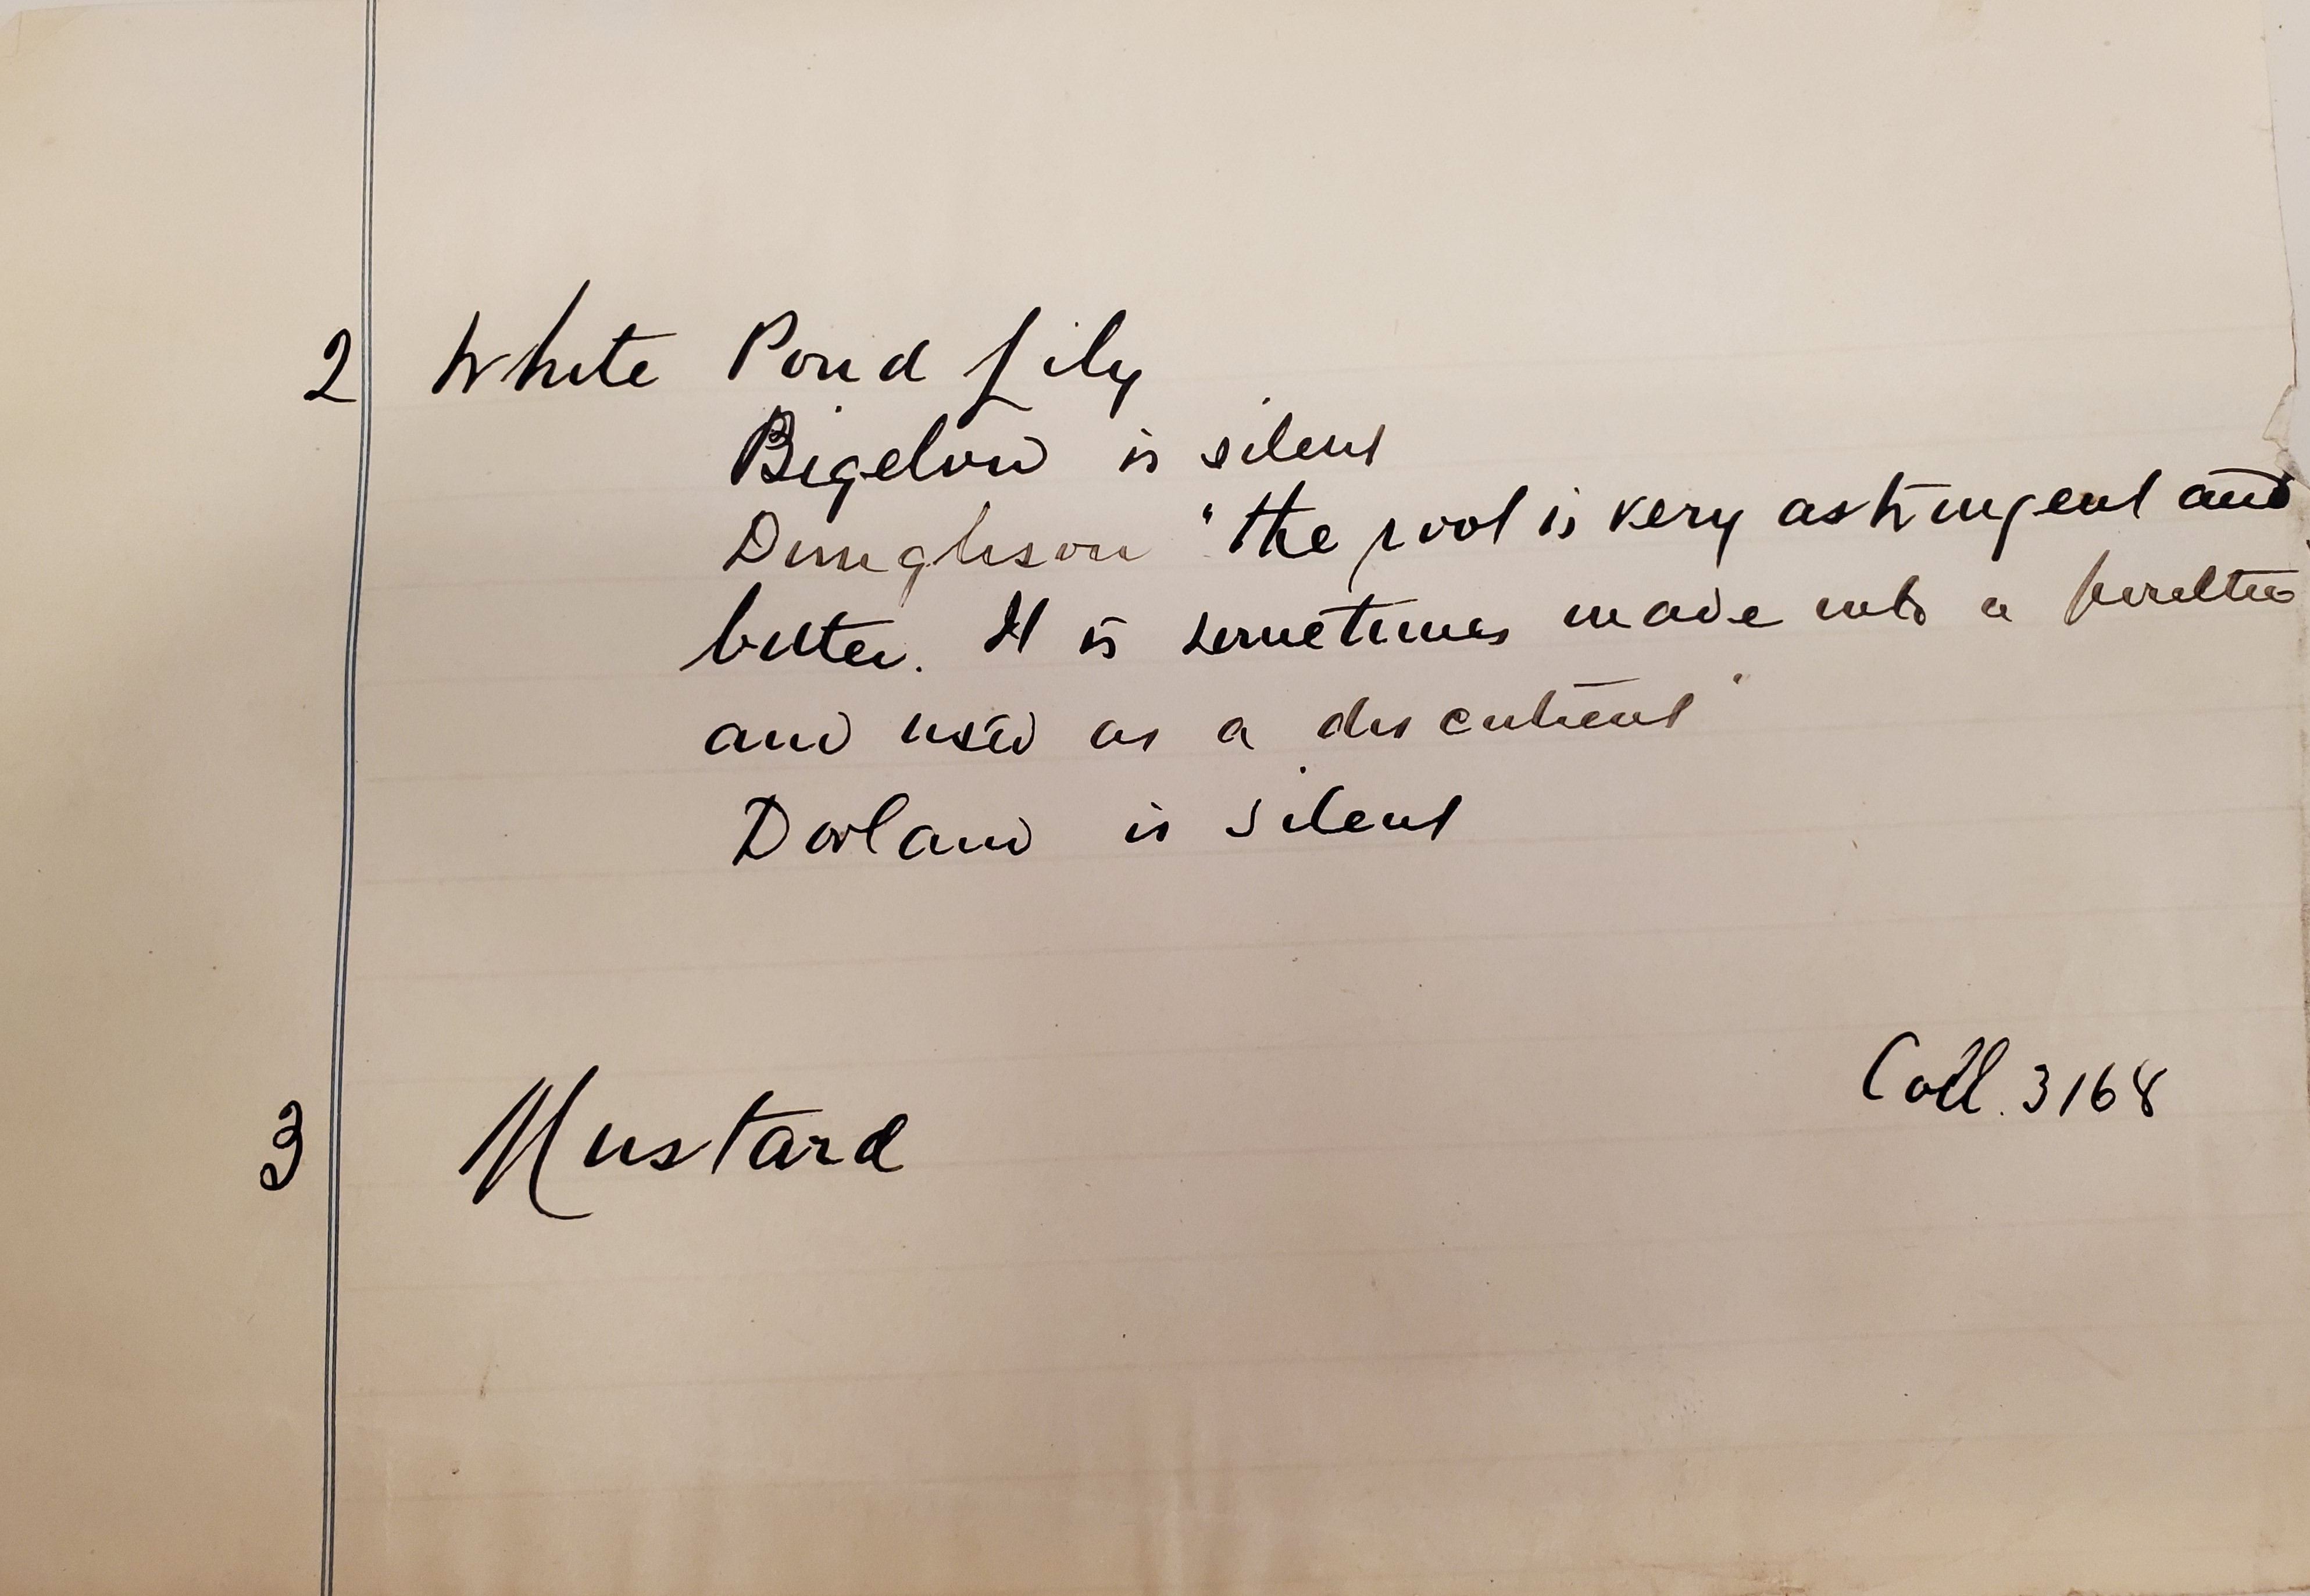 2 White Pond Lily
Bigelow is silent
Dunglison "the root is very astringent and
bitter. It is sometimes made into a poultice
and used as a discutient"
Dorland is silent
Coll. 3168
3 Mustard